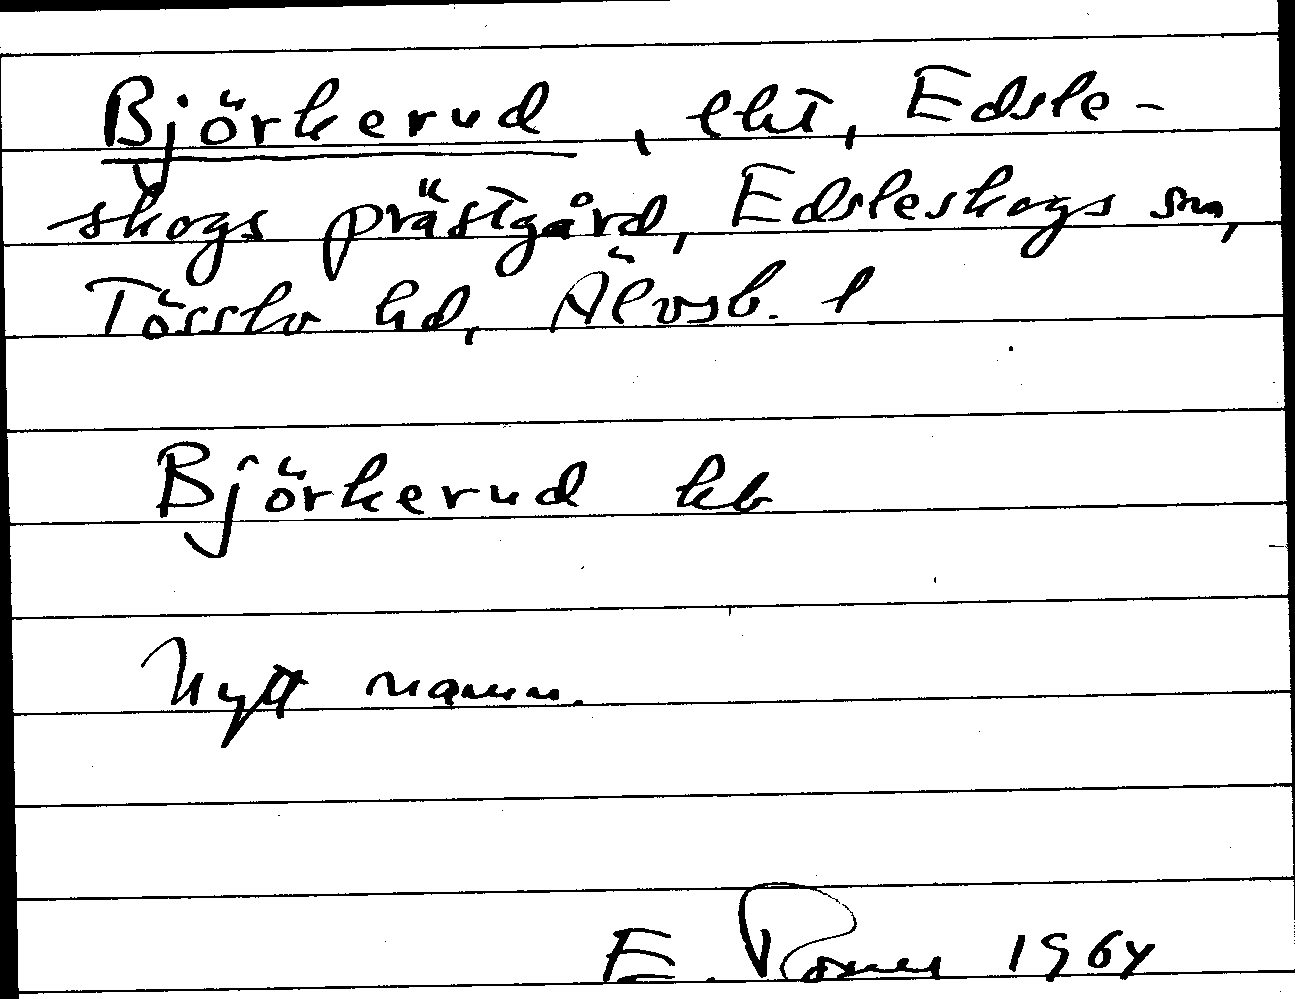 Björkerud, lht, Edsle-
skogs prästgård, Edsleskogs sn,
Tössbo hd, Älvsb. l
Björkerud kb
Nytt namn.
E. 1964